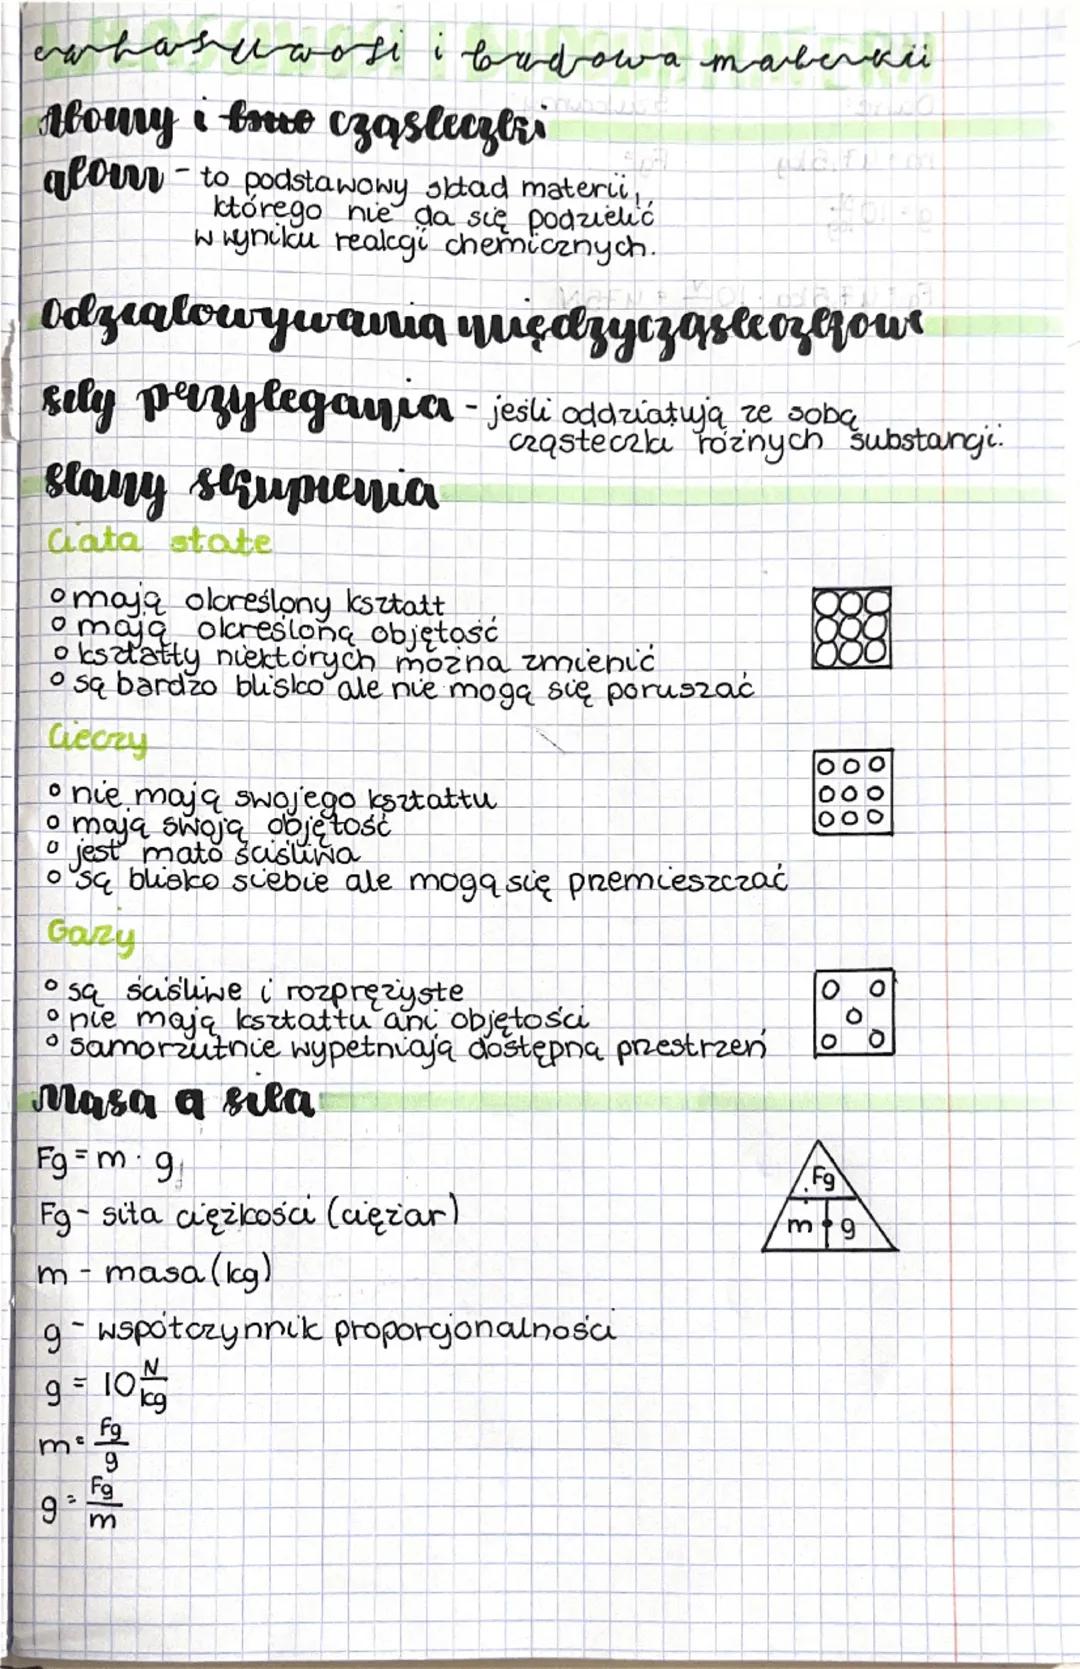 właściwości i budowa materii
Atomy i cząsteczki
atom - to podstawowy skład materii,
którego nie da się podzielić
w wyniku reakcji chemicznych.
Oddziałowywania międzycząsteczkowe
siły przylegania - jeśli oddziałują ze sobą
cząsteczki różnych substancji.
stany skupienia
Ciała stałe
• mają określony kształt
• mają określoną objętość
• kształty niektórych można zmienić
• są bardzo blisko ale nie mogą się poruszać
Cieczy
• nie mają swojego kształtu
• mają swoją objętość
• jest mało ściśliwa
• są blisko siebie ale mogą się przemieszczać
Gazy
• są ściśliwe i rozprężyste
• nie mają kształtu ani objętości
• samorzutnie wypełniają dostępną przestrzeń
Masa a siła
Fg = m · g
Fg
m · g
Fg - siła ciężkości (ciężar)
m - masa (kg)
g - współczynnik proporcjonalności
g = 10 N/kg
m = Fg/g
g = Fg/m